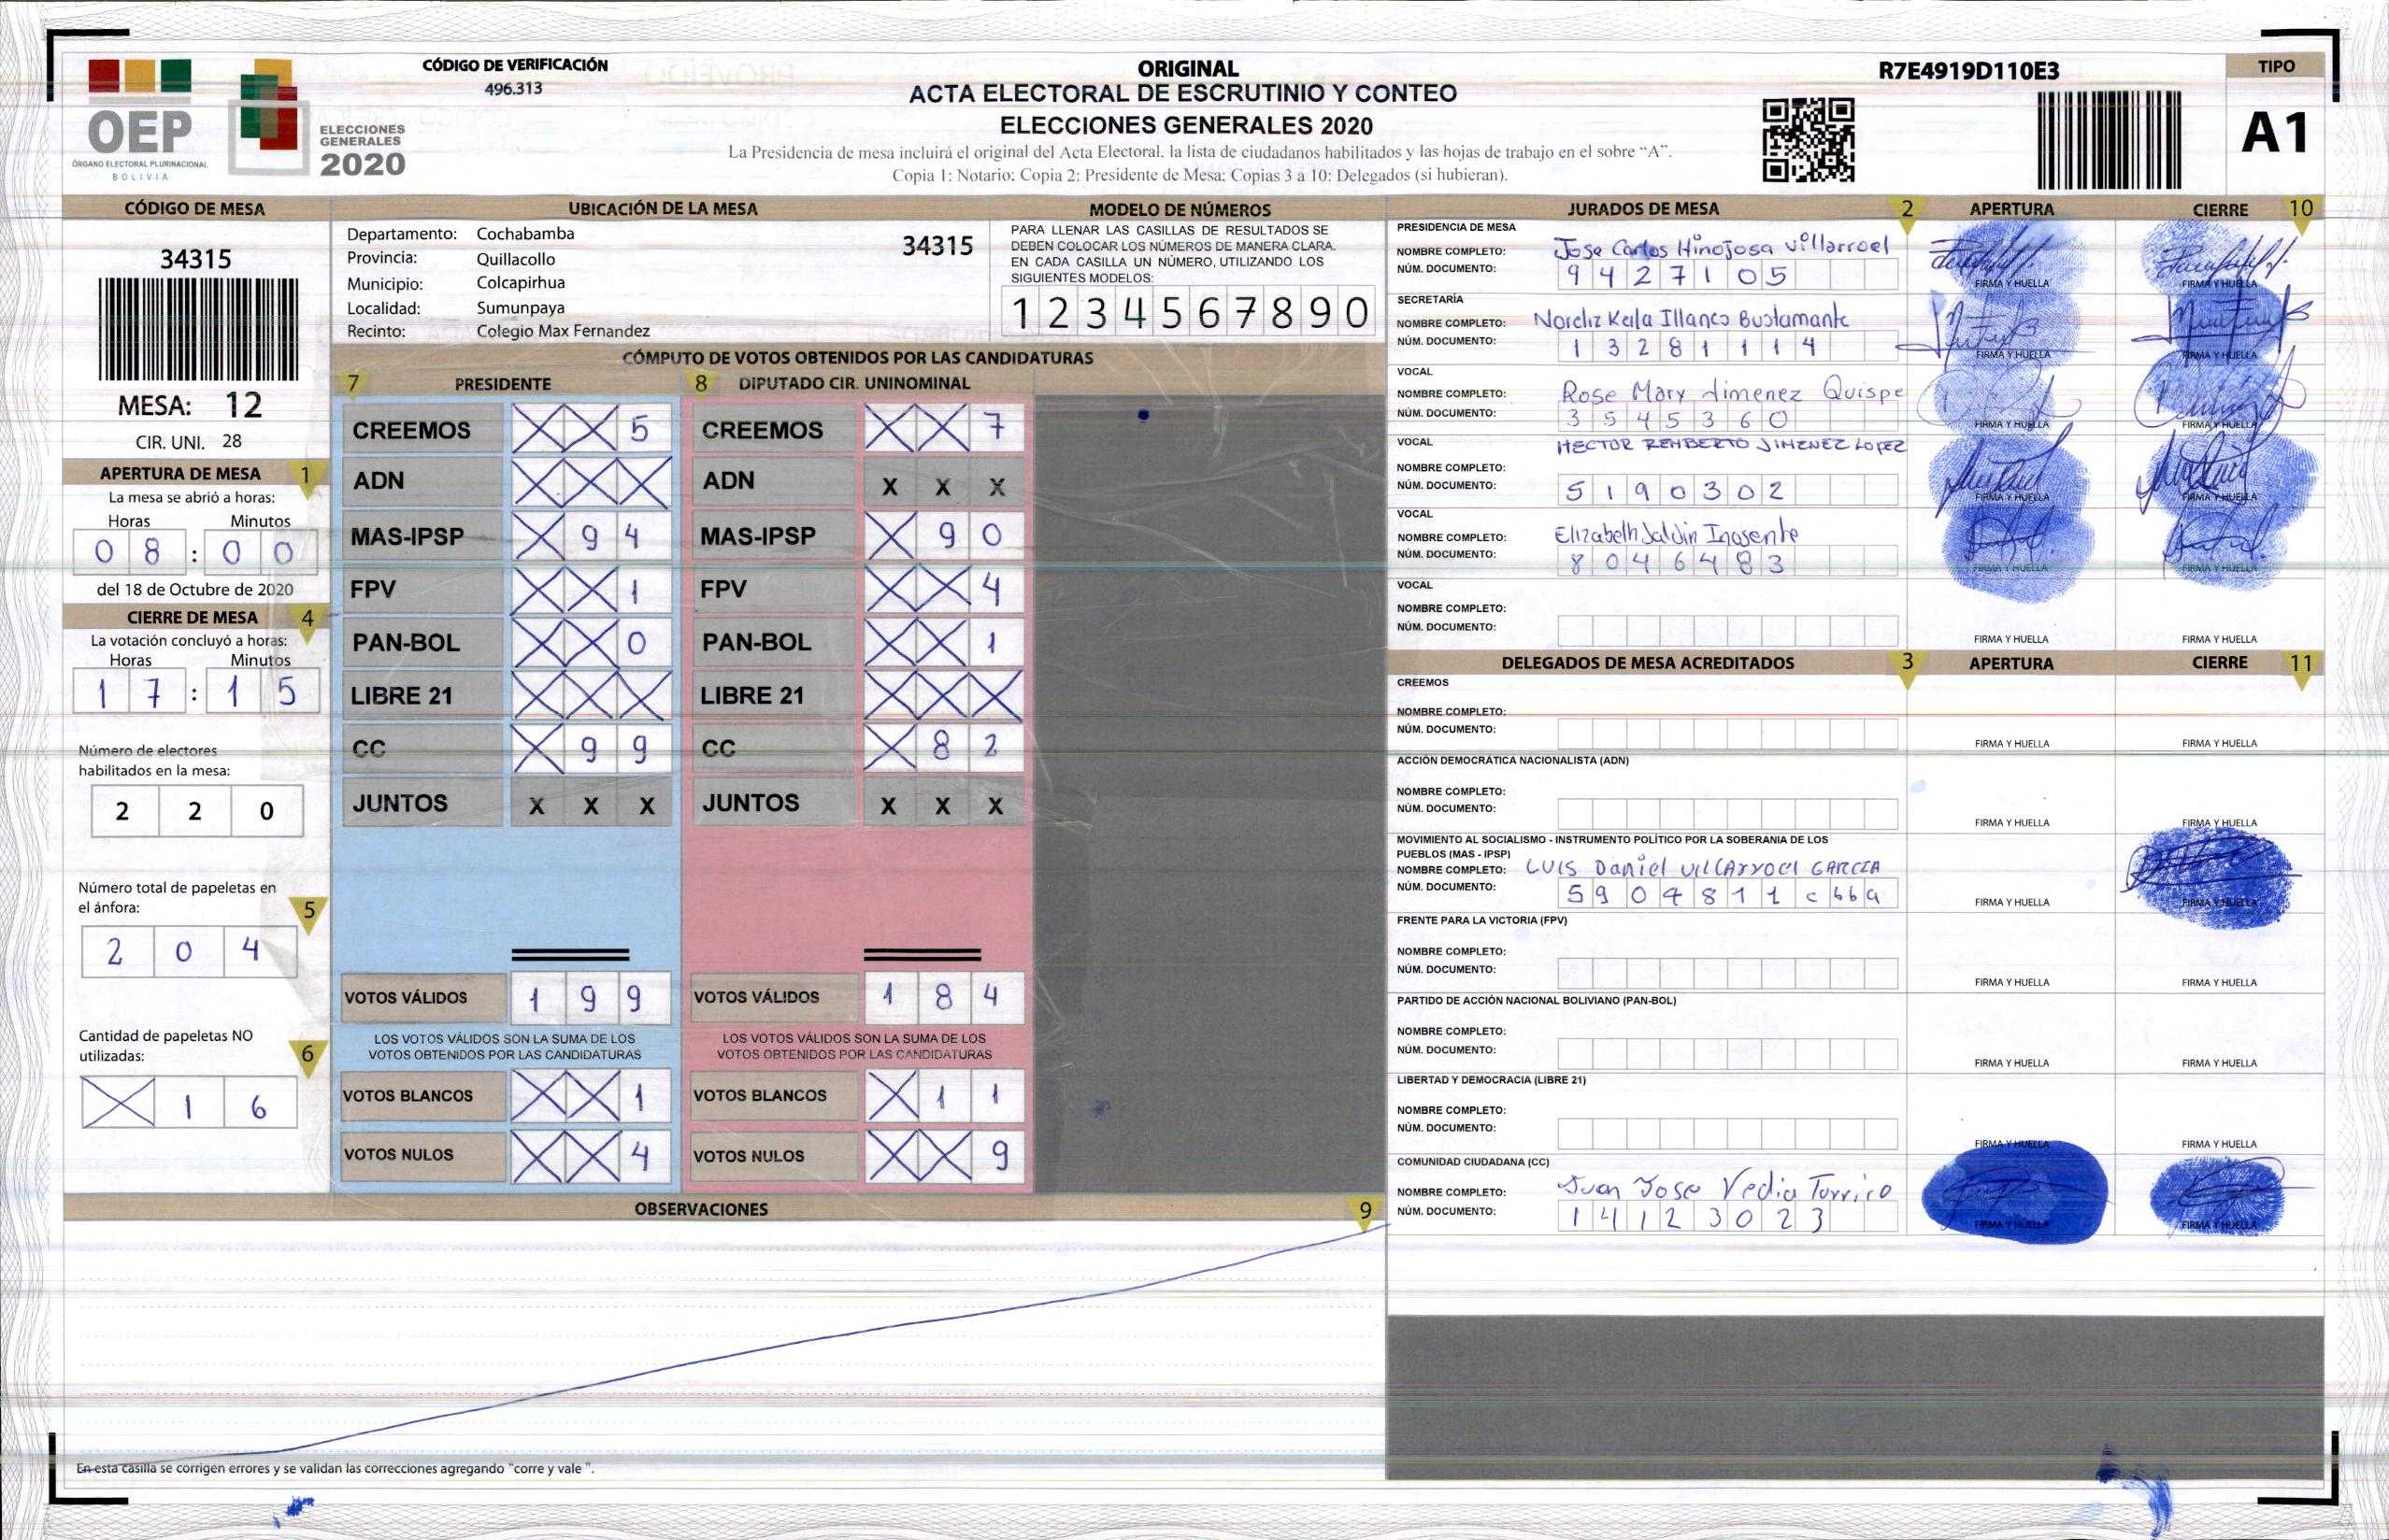 CÓDIGO DE VERIFICACIÓN
496.313
OEP
ÓRGANO ELECTORAL PLURINACIONAL
BOLIVIA
ELECCIONES
GENERALES
2020
ORIGINAL
ACTA ELECTORAL DE ESCRUTINIO Y CONTEO
ELECCIONES GENERALES 2020
La Presidencia de mesa incluirá el original del Acta Electoral, la lista de ciudadanos habilitados y las hojas de trabajo en el sobre “A”.
Copia 1: Notario; Copia 2: Presidente de Mesa; Copias 3 a 10: Delegados (si hubieran).
R7E4919D110E3
TIPO
A1
CÓDIGO DE MESA
34315
MESA: 12
CIR. UNI. 28
APERTURA DE MESA 1
La mesa se abrió a horas:
Horas Minutos
0 8 : 0 0
del 18 de Octubre de 2020
CIERRE DE MESA 4
La votación concluyó a horas:
Horas Minutos
1 7 : 1 5
Número de electores
habilitados en la mesa:
2 2 0
Número total de papeletas en
el ánfora: 5
2 0 4
Cantidad de papeletas NO
utilizadas: 6
X 1 6
UBICACIÓN DE LA MESA
Departamento: Cochabamba
34315
Provincia: Quillacollo
Municipio: Colcapirhua
Localidad: Sumunpaya
Recinto: Colegio Max Fernandez
MODELO DE NÚMEROS
PARA LLENAR LAS CASILLAS DE RESULTADOS SE
DEBEN COLOCAR LOS NÚMEROS DE MANERA CLARA.
EN CADA CASILLA UN NÚMERO, UTILIZANDO LOS
SIGUIENTES MODELOS:
1 2 3 4 5 6 7 8 9 0
CÓMPUTO DE VOTOS OBTENIDOS POR LAS CANDIDATURAS
7 PRESIDENTE
CREEMOS X X 5
ADN X X X
MAS-IPSP X 9 4
FPV X X 1
PAN-BOL X X 0
LIBRE 21 X X X
CC X 9 9
JUNTOS X X X
VOTOS VÁLIDOS 1 9 9
LOS VOTOS VÁLIDOS SON LA SUMA DE LOS
VOTOS OBTENIDOS POR LAS CANDIDATURAS
VOTOS BLANCOS X X 1
VOTOS NULOS X X 4
8 DIPUTADO CIR. UNINOMINAL
CREEMOS X X 7
ADN X X X
MAS-IPSP X 9 0
FPV X X 4
PAN-BOL X X 1
LIBRE 21 X X X
CC X 8 2
JUNTOS X X X
VOTOS VÁLIDOS 1 8 4
LOS VOTOS VÁLIDOS SON LA SUMA DE LOS
VOTOS OBTENIDOS POR LAS CANDIDATURAS
VOTOS BLANCOS X 1 1
VOTOS NULOS X X 9
OBSERVACIONES 9
En esta casilla se corrigen errores y se validan las correcciones agregando "corre y vale ".
JURADOS DE MESA 2 APERTURA CIERRE 10
PRESIDENCIA DE MESA
NOMBRE COMPLETO: Jose Carlos Hinojosa villarroel
NÚM. DOCUMENTO: 9 4 2 7 1 0 5
FIRMA Y HUELLA FIRMA Y HUELLA
SECRETARÍA
NOMBRE COMPLETO: Noreliz Keila Illanes Bustamante
NÚM. DOCUMENTO: 1 3 2 8 1 1 1 4
FIRMA Y HUELLA FIRMA Y HUELLA
VOCAL
NOMBRE COMPLETO: Rose Mary Jimenez Quispe
NÚM. DOCUMENTO: 3 5 4 5 3 6 0
FIRMA Y HUELLA FIRMA Y HUELLA
VOCAL
HECTOR REMBERTO JIMENEZ LOPEZ
NOMBRE COMPLETO:
NÚM. DOCUMENTO: 5 1 9 0 3 0 2
FIRMA Y HUELLA FIRMA Y HUELLA
VOCAL
NOMBRE COMPLETO: Elizabeth Jaldin Inosente
NÚM. DOCUMENTO: 8 0 4 6 4 8 3
FIRMA Y HUELLA FIRMA Y HUELLA
VOCAL
NOMBRE COMPLETO:
NÚM. DOCUMENTO:
FIRMA Y HUELLA FIRMA Y HUELLA
DELEGADOS DE MESA ACREDITADOS 3 APERTURA CIERRE 11
CREEMOS
NOMBRE COMPLETO:
NÚM. DOCUMENTO:
FIRMA Y HUELLA FIRMA Y HUELLA
ACCIÓN DEMOCRÁTICA NACIONALISTA (ADN)
NOMBRE COMPLETO:
NÚM. DOCUMENTO:
FIRMA Y HUELLA FIRMA Y HUELLA
MOVIMIENTO AL SOCIALISMO - INSTRUMENTO POLÍTICO POR LA SOBERANIA DE LOS
PUEBLOS (MAS - IPSP)
NOMBRE COMPLETO: LUIS Daniel VILLArroel GARCIA
NÚM. DOCUMENTO: 5 9 0 4 8 1 1 c b b a
FIRMA Y HUELLA FIRMA Y HUELLA
FRENTE PARA LA VICTORIA (FPV)
NOMBRE COMPLETO:
NÚM. DOCUMENTO:
FIRMA Y HUELLA FIRMA Y HUELLA
PARTIDO DE ACCIÓN NACIONAL BOLIVIANO (PAN-BOL)
NOMBRE COMPLETO:
NÚM. DOCUMENTO:
FIRMA Y HUELLA FIRMA Y HUELLA
LIBERTAD Y DEMOCRACIA (LIBRE 21)
NOMBRE COMPLETO:
NÚM. DOCUMENTO:
FIRMA Y HUELLA FIRMA Y HUELLA
COMUNIDAD CIUDADANA (CC)
NOMBRE COMPLETO: Juan Jose Vedia Torrico
NÚM. DOCUMENTO: 1 4 1 2 3 0 2 3
FIRMA Y HUELLA FIRMA Y HUELLA